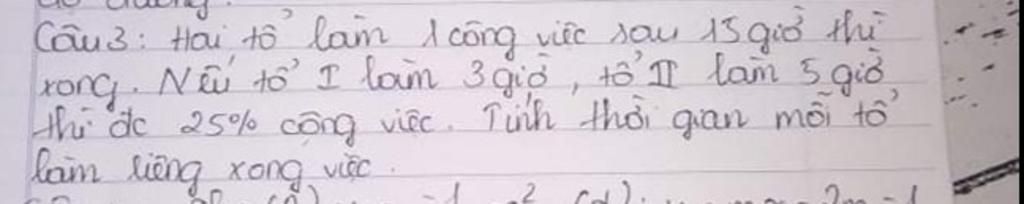 Câu 3: Hai tổ làm 1 công việc sau 15 giờ thì
xong. Nếu tổ I làm 3 giờ, tổ II làm 5 giờ
thì đc 25% công việc. Tính thời gian mỗi tổ
làm riêng xong việc.